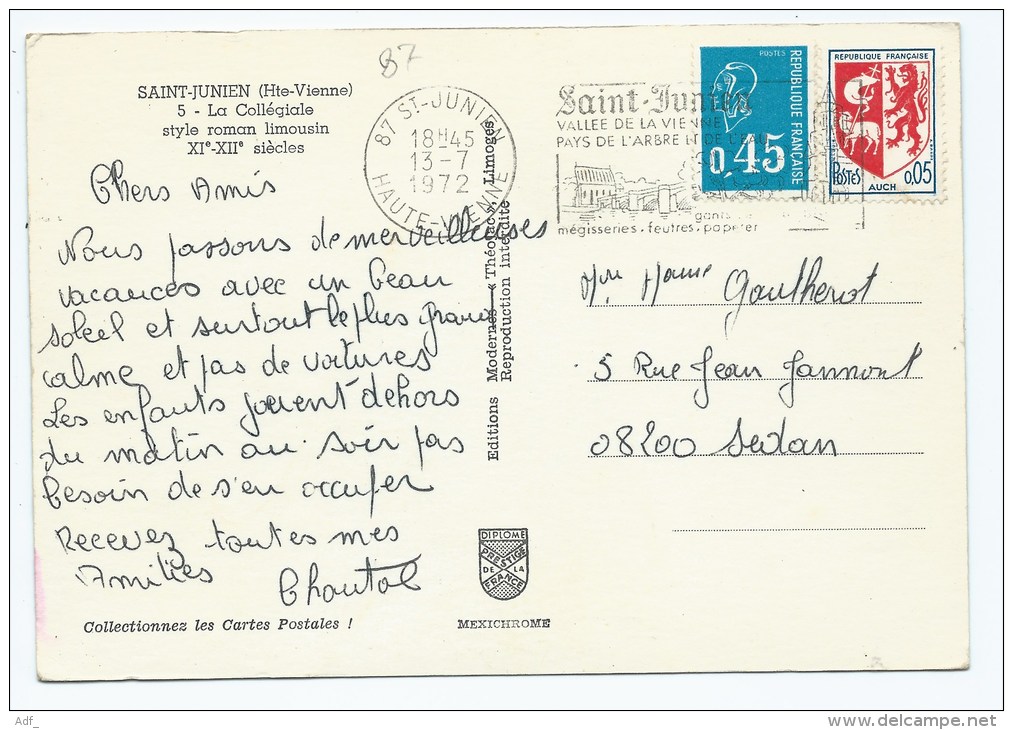 87
SAINT-JUNIEN (Hte-Vienne)
5 - La Collégiale
style roman limousin
XIe-XIIe siècles
Chers Amis
Nous passons de merveilleuses
vacances avec un beau
soleil et surtout le plus grand
calme et pas de voitures
Les enfants jouent dehors
du matin au soir pas
besoin de s'en occuper
Recevez toutes mes
Amitiés Chantal
Collectionnez les Cartes Postales !
87 ST-JUNIEN
18H45
13-7
1972
HAUTE-VIENNE
Saint-Junien
VALLEE DE LA VIENNE
PAYS DE L'ARBRE ET DE L'EAU
gants
mégisseries. feutres. papeter
POSTES
REPUBLIQUE FRANÇAISE
0,45
REPUBLIQUE FRANÇAISE
POSTES
0,05
AUCH
Editions Modernes « Théojac », Limoges
Reproduction interdite
Mr Mame Goutherot
5 Rue Jean Jannout
08200 Sedan
DIPLOME
PRESTIGE
DE LA
FRANCE
MEXICHROME
Adf_
www.delcampe.net